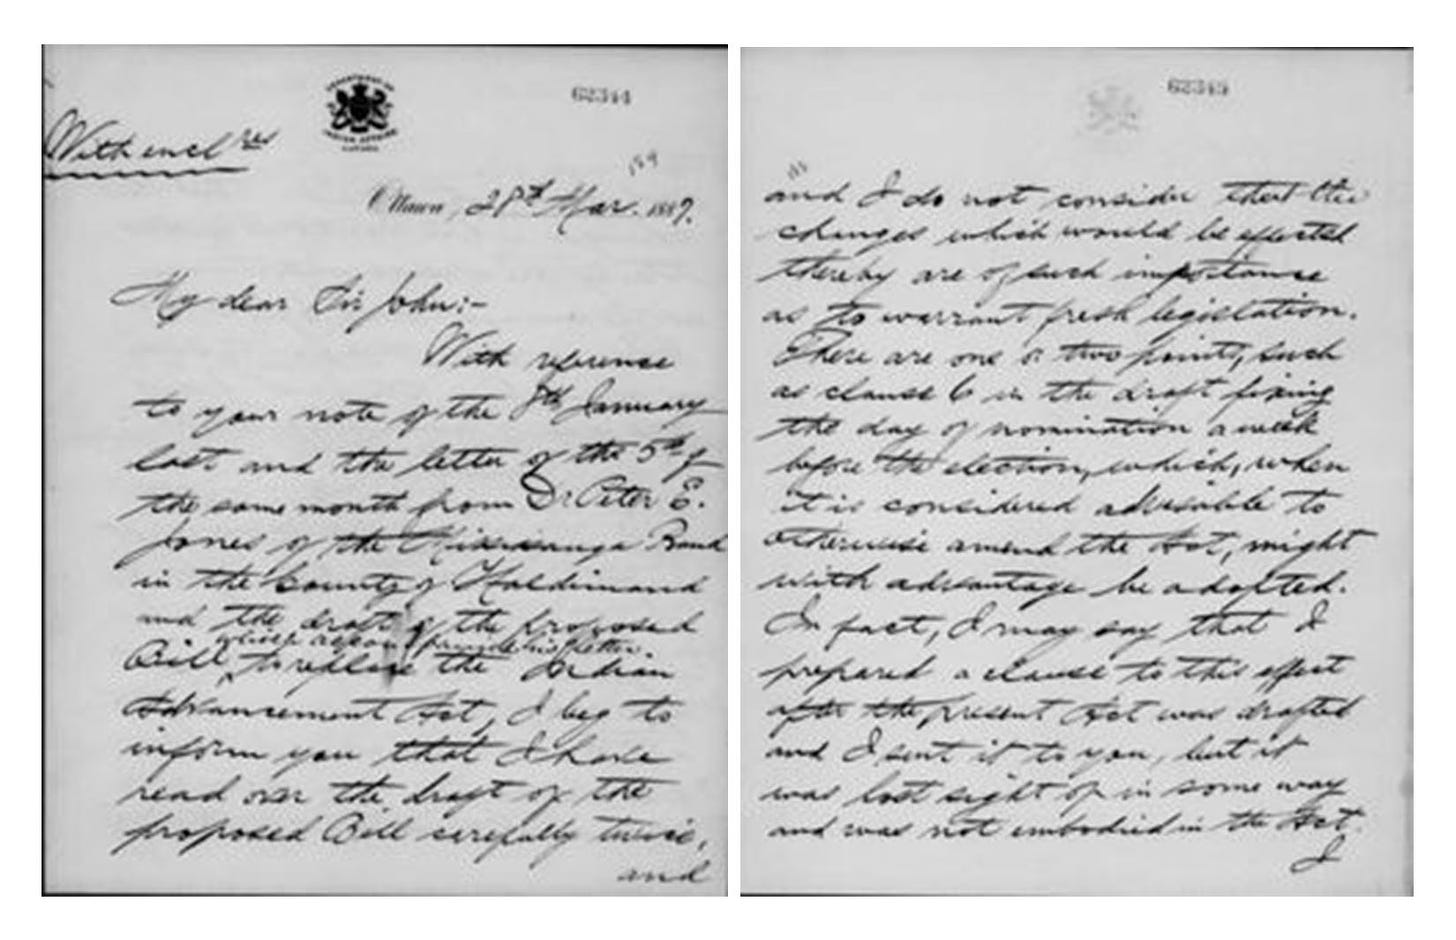 62344
With encl res
DEPARTMENT OF
INDIAN AFFAIRS
CANADA
189
Ottawa, 28th Mar. 1887.
My dear Sir John:-
With reference
to your note of the 8th January
last and the letter of the 5th of
the same month from Dr Peter E.
Jones of the Mississauga Band
in the County of Haldimand
and the draft of the proposed
which accompanied his letter.
Bill, to replace the Indian
Advancement Act, I beg to
inform you that I have
read over the draft of the
proposed Bill carefully twice,
and
62345
and I do not consider that the
changes which would be effected
thereby are of such importance
as to warrant fresh legislation.
There are one or two points, such
as clause 6 in the draft fixing
the day of nomination a week
before the election, which, when
it is considered advisable to
otherwise amend the Act, might
with advantage be adopted.
In fact, I may say that I
prepared a clause to this effect
after the present Act was drafted
and I sent it to you, but it
was lost sight of in some way
and was not embodied in the Act.
I